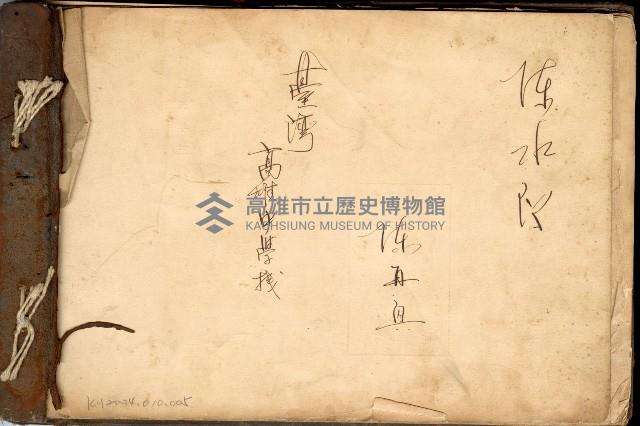 陈水
陈再興
臺灣
高雄中學
高雄市立歷史博物館
KAOHSIUNG MUSEUM OF HISTORY
KH2024.010.005